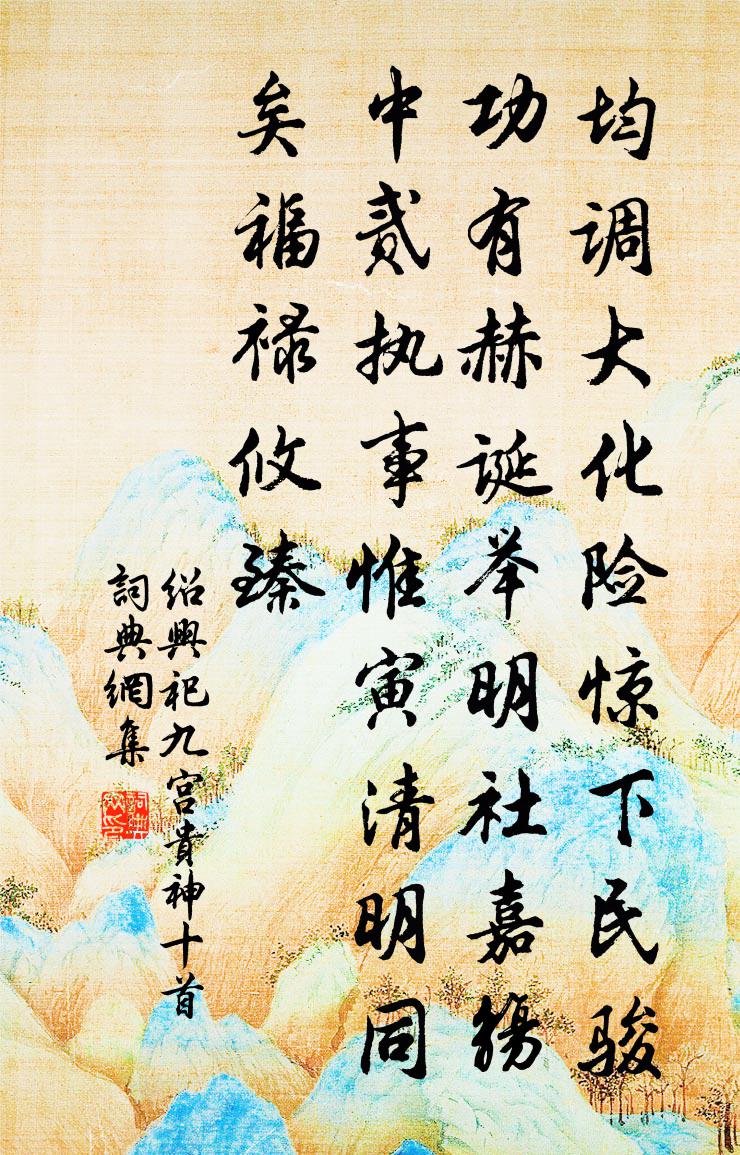 均调大化险惊下民骏
功有赫诞举明社嘉觴
中贰执事惟寅清明同
矣福禄攸臻
紹興祀九宫貴神十首
詞典網集